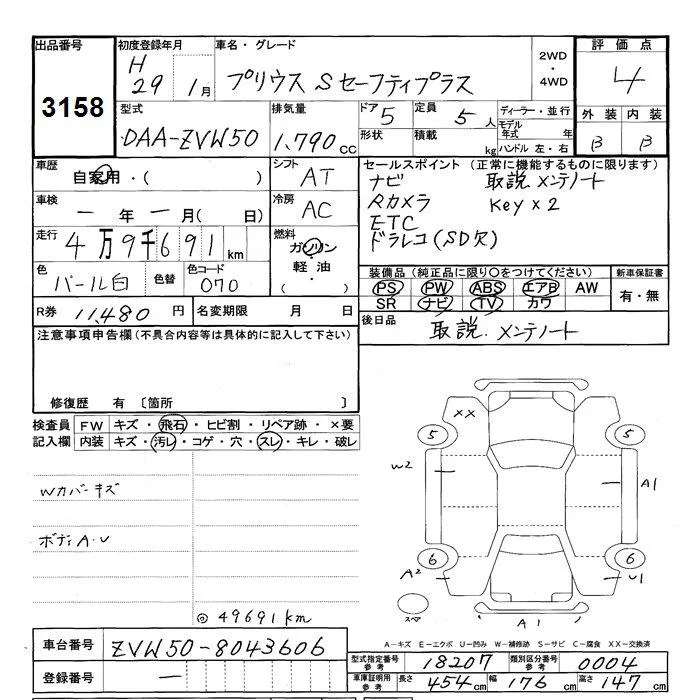 出品番号 初度登録年月 車名・グレード 2WD・4WD 評価点
3158 H29 1月 プリウス Sセーフティプラス 4
型式 排気量 ドア 5 定員 5人 ディーラー・並行 外装 内装
DAA-ZVW50 1,790cc 形状 積載 kg モデル年式 年 ハンドル 左・右 B B
車歴 自家用・( ) シフト AT セールスポイント (正常に機能するものに限ります)
車検 一年一月( 日) 冷房 AC ナビ 取説 メンテノート
Rカメラ Key×2
ETC
ドラレコ(SD欠)
走行 4万9千691km 燃料 ガソリン・軽油・( )
色 パール白 色替 色コード 070 装備品 (純正品に限り○をつけてください) 新車保証書
PS PW ABS エアB AW 有・無
SR ナビ TV カワ
R券 11,480円 名変期限 月 日 後日品 取説.メンテノート
注意事項申告欄 (不具合内容等は具体的に記入して下さい)
修復歴 有 〔箇所 〕
検査員記入欄 FW キズ・飛石・ヒビ割・リペア跡・×要
内装 キズ・汚レ・コゲ・穴・スレ・キレ・破レ
Wカバーキズ
ボディA・U
◎49691km
XX
5 5
W2 A1
6 6
A2 U1
スペア A1
A-キズ E-エクボ U-凹み W-補修跡 S-サビ C-腐食 XX-交換済
車台番号 ZVW50-8043606
登録番号 一
型式指定番号 参考 18207 類別区分番号 参考 0004
車庫証明用 参考 長さ 454cm 幅 176cm 高さ 147cm